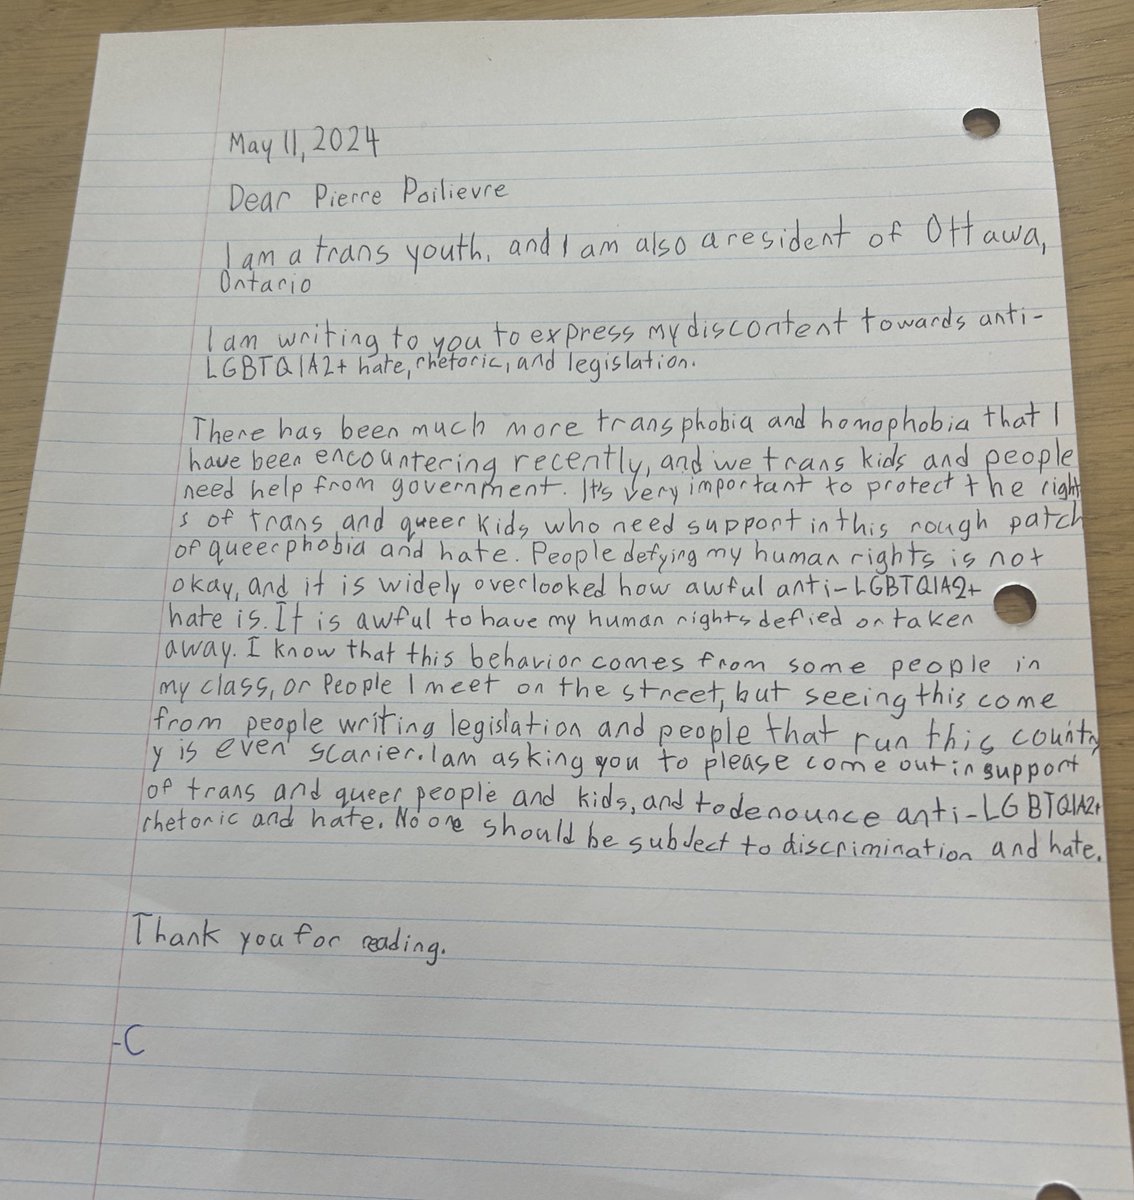 May 11, 2024
Dear Pierre Poilievre
I am a trans youth, and I am also a resident of Ottawa,
Ontario
I am writing to you to express my discontent towards anti-
LGBTQIA2+ hate, rhetoric, and legislation.
There has been much more transphobia and homophobia that I
have been encountering recently, and we trans kids and people
need help from government. It's very important to protect the right
s of trans and queer kids who need support in this rough patch
of queerphobia and hate. People defying my human rights is not
okay, and it is widely overlooked how awful anti-LGBTQIA2+
hate is. It is awful to have my human rights defied or taken
away. I know that this behavior comes from some people in
my class, or People I meet on the street, but seeing this come
from people writing legislation and people that run this countr
y is even scarier. I am asking you to please come out in support
of trans and queer people and kids, and to denounce anti-LGBTQIA2+
rhetoric and hate. No one should be subject to discrimination and hate.
Thank you for reading.
-C